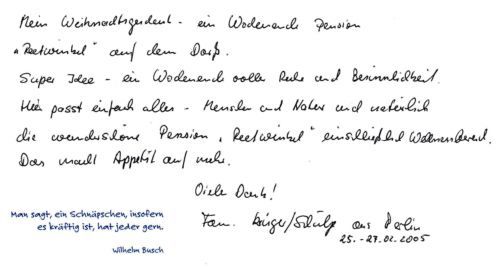 Mein Weihnachtsgeschenk - ein Wochenende Pension
"Reetwinkel" auf dem Darß.
Super Idee - ein Wochenende voller Ruhe und Besinnlichkeit.
Hier passt einfach alles - Menschen und Natur und natürlich
die wunderschöne Pension "Reetwinkel" einschließlich
Das macht Appetit auf mehr.
Vielen Dank!
Fam. Krüger/Schulz aus Berlin
25.-27.02.2005
Man sagt, ein Schnäpschen, insofern
es kräftig ist, hat jeder gern.
Wilhelm Busch